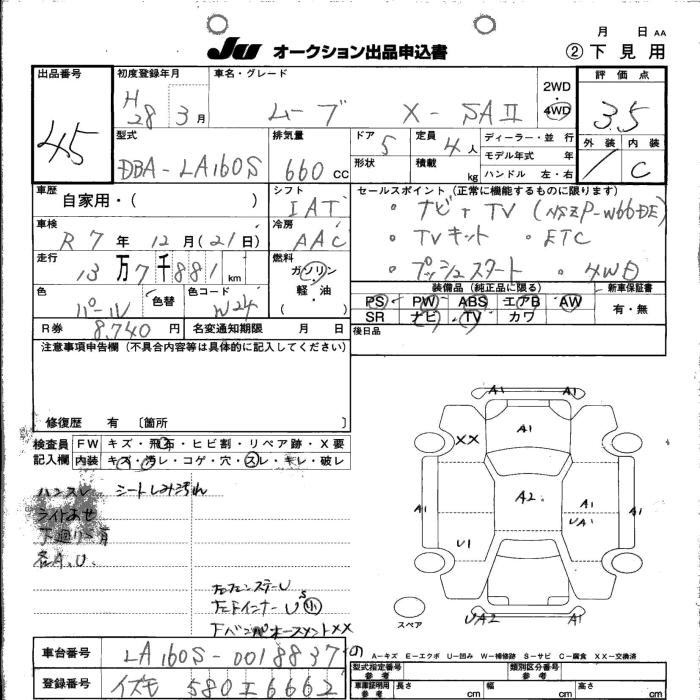 月 日 AA
JU オークション出品申込書 ② 下見用
出品番号 初度登録年月 車名・グレード 2WD ・ 4WD 評価点
45 H28 3月 ムーブ X-SAⅡ 3.5
型式 排気量 ドア 5 定員 4人 ディーラー・並 行 外装 内装
DBA-LA160S 660cc 形状 積載 kg モデル年式 年 C
ハンドル 左・右
車歴 自家用・( ) シフト IAT セールスポイント(正常に機能するものに限ります)
・ナビ+TV (NSZP-W66DE)
車検 R7年 12月(21日) 冷房 AAC ・TVキット ・ETC
走行 13万7千881km 燃料 ガソリン 軽・油 ( ) ・プッシュスタート ・4WD
色 パール 色替 色コード W24 装備品(純正品に限る) 新車保証書
PS PW ABS エアB AW 有・無
SR ナビ・TV カワ
R券 8,740円 名変通知期限 月 日 後日品
注意事項申告欄(不具合内容等は具体的に記入してください)
修復歴 有 〔箇所 〕
検査員 FW キズ・飛石・ヒビ割・リペア跡・X要
記入欄 内装 キズ・汚レ・コゲ・穴・スレ・キレ・破レ
ハンスレ シートしみ汚れ
下廻り 有
各A.U.
A1 A1
XX A1
A2
A1 A1 A1
UA1
U1
UA2 A1
スペア
A-キズ E-エクボ U-凹み W-補修跡 S-サビ C-腐食 XX-交換済
車台番号 LA160S-0018837
登録番号 イズモ 580 エ 6662
型式指定番号 類別区分番号
車庫証明用参考 長さ cm 幅 cm 高さ cm